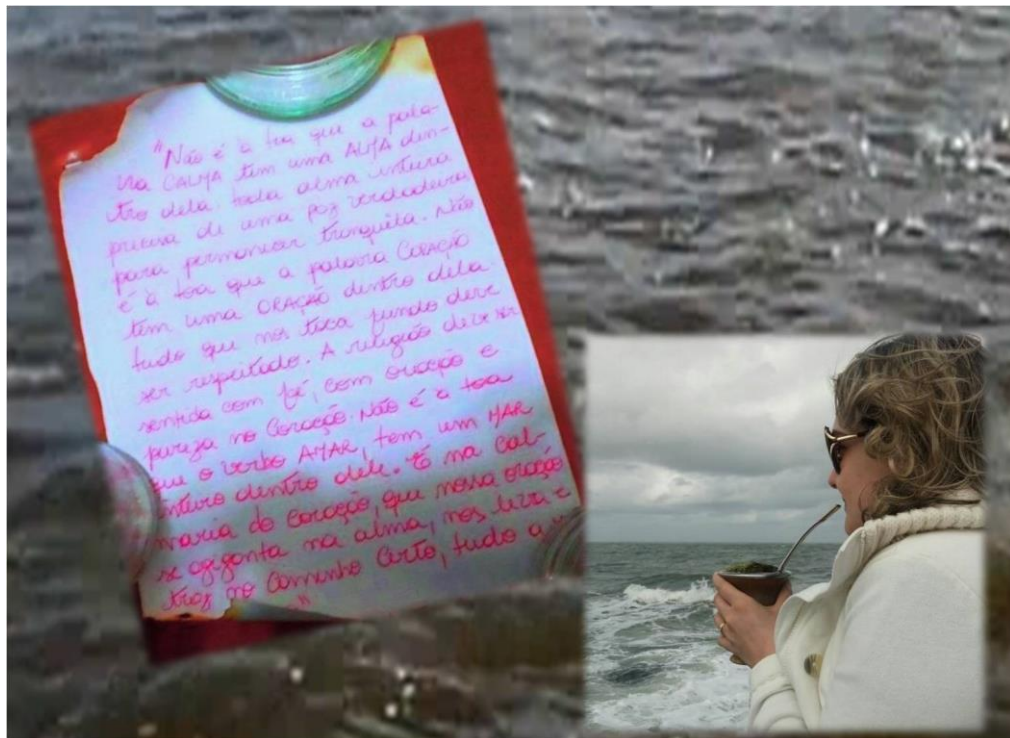 "Não é à toa que a pala-
vra CALMA tem uma ALMA den-
tro dela. toda alma inteira
precisa de uma paz verdadeira
para permanecer tranquila. Não
é à toa que a palavra CORAÇÃO
tem uma ORAÇÃO dentro dela.
tudo que nos toca fundo deve
ser respeitado. A religião deve ser
sentida com fé, com oração e
pureza no Coração. Não é à toa
que o verbo AMAR, tem um MAR
inteiro dentro dele. É na cal-
maria do Coração, que nossa oração
se agiganta na alma, nos leva e
traz no Caminho Certo, tudo a
"